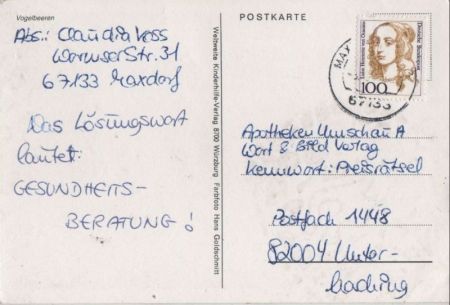 Vogelbeeren
POSTKARTE
Abs.: Claudia Voss
Wormser Str. 31
67133 Maxdorf
Das Lösungswort
lautet:
GESUNDHEITS-
BERATUNG!
Weltweite Kinderhilfe-Verlag 8700 Würzburg Farbfoto Hans Goldschmitt
Deutsche Bundespost
100
MAX
67133
Apotheken Umschau A
Wort & Bild Verlag
Kennwort: Preisrätsel
Postfach 1448
82004 Unter-
haching